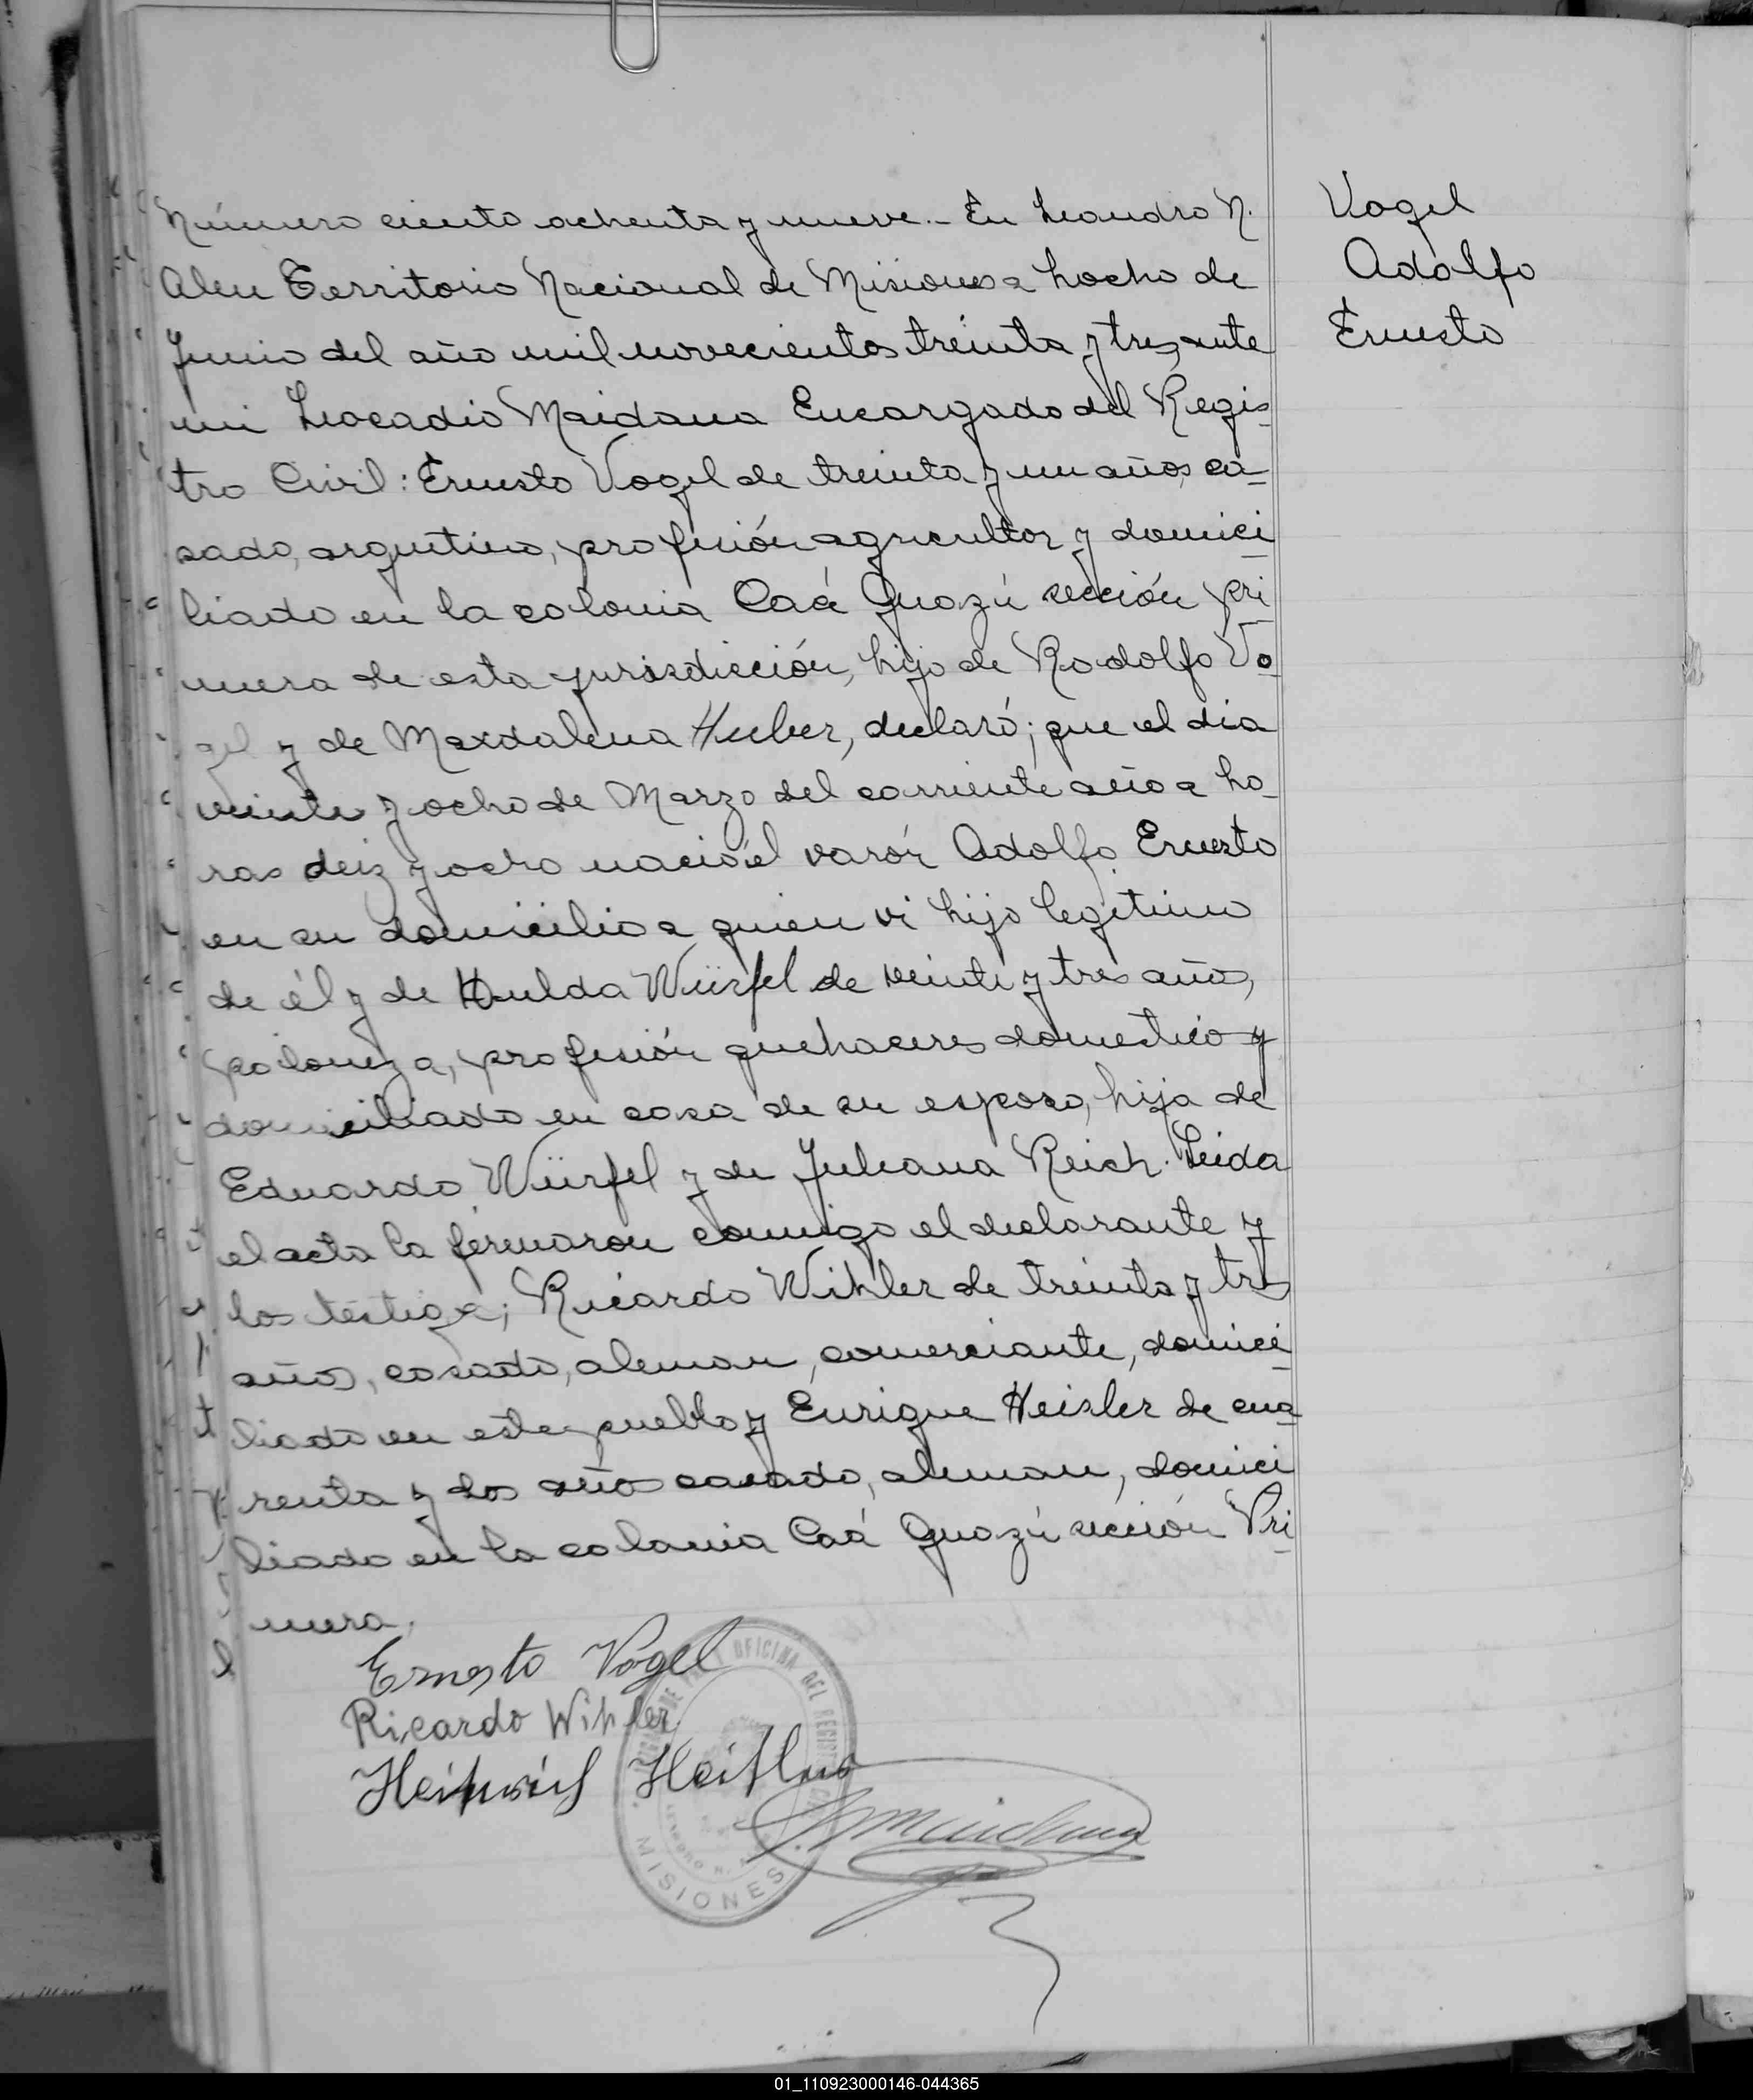 Número ciento ochenta y nueve.- En Leandro N.
Alen Territorio Nacional de Misiones a hocho de
Junio del año mil novecientos treinta y tres, ante
mi Leocadio Maidana Encargado del Regis-
tro Civil: Ernesto Vogel de treinta y un años, ca-
sado, argentino, profesión agricultor y domici-
liado en la colonia Caá Guazú sección pri-
mera de esta jurisdicción, hijo de Rodolfo Vo-
gel y de Maxdalena Huber, declaró; que el dia
veinte y ocho de Marzo del corriente año a ho-
ras deiz y ocho nació el varón Adolfo Ernesto
en su domicilio a quien vi hijo legitimo
de él y de Hulda Würfel de veinte y tres años,
poloneza, profesión quehaceres domestico y
domiciliado en casa de su esposo, hija de
Eduardo Würfel y de Juliana Reich. Leida
el acta la firmaron conmigo el declarante y
los testigos; Ricardo Wihler de treinta y tres
años, casado, aleman, comerciante, domici-
liado en este pueblo y Enrique Heisler de cua-
renta y dos años casado, aleman, domici-
liado en la colonia Caá Guazú sección Pri-
mera.
Vogel
Adolfo
Ernesto
Ernesto Vogel
Ricardo Wihler
Heinrich
OFICINA DEL REGISTRO
MISIONES
01_110923000146-044365